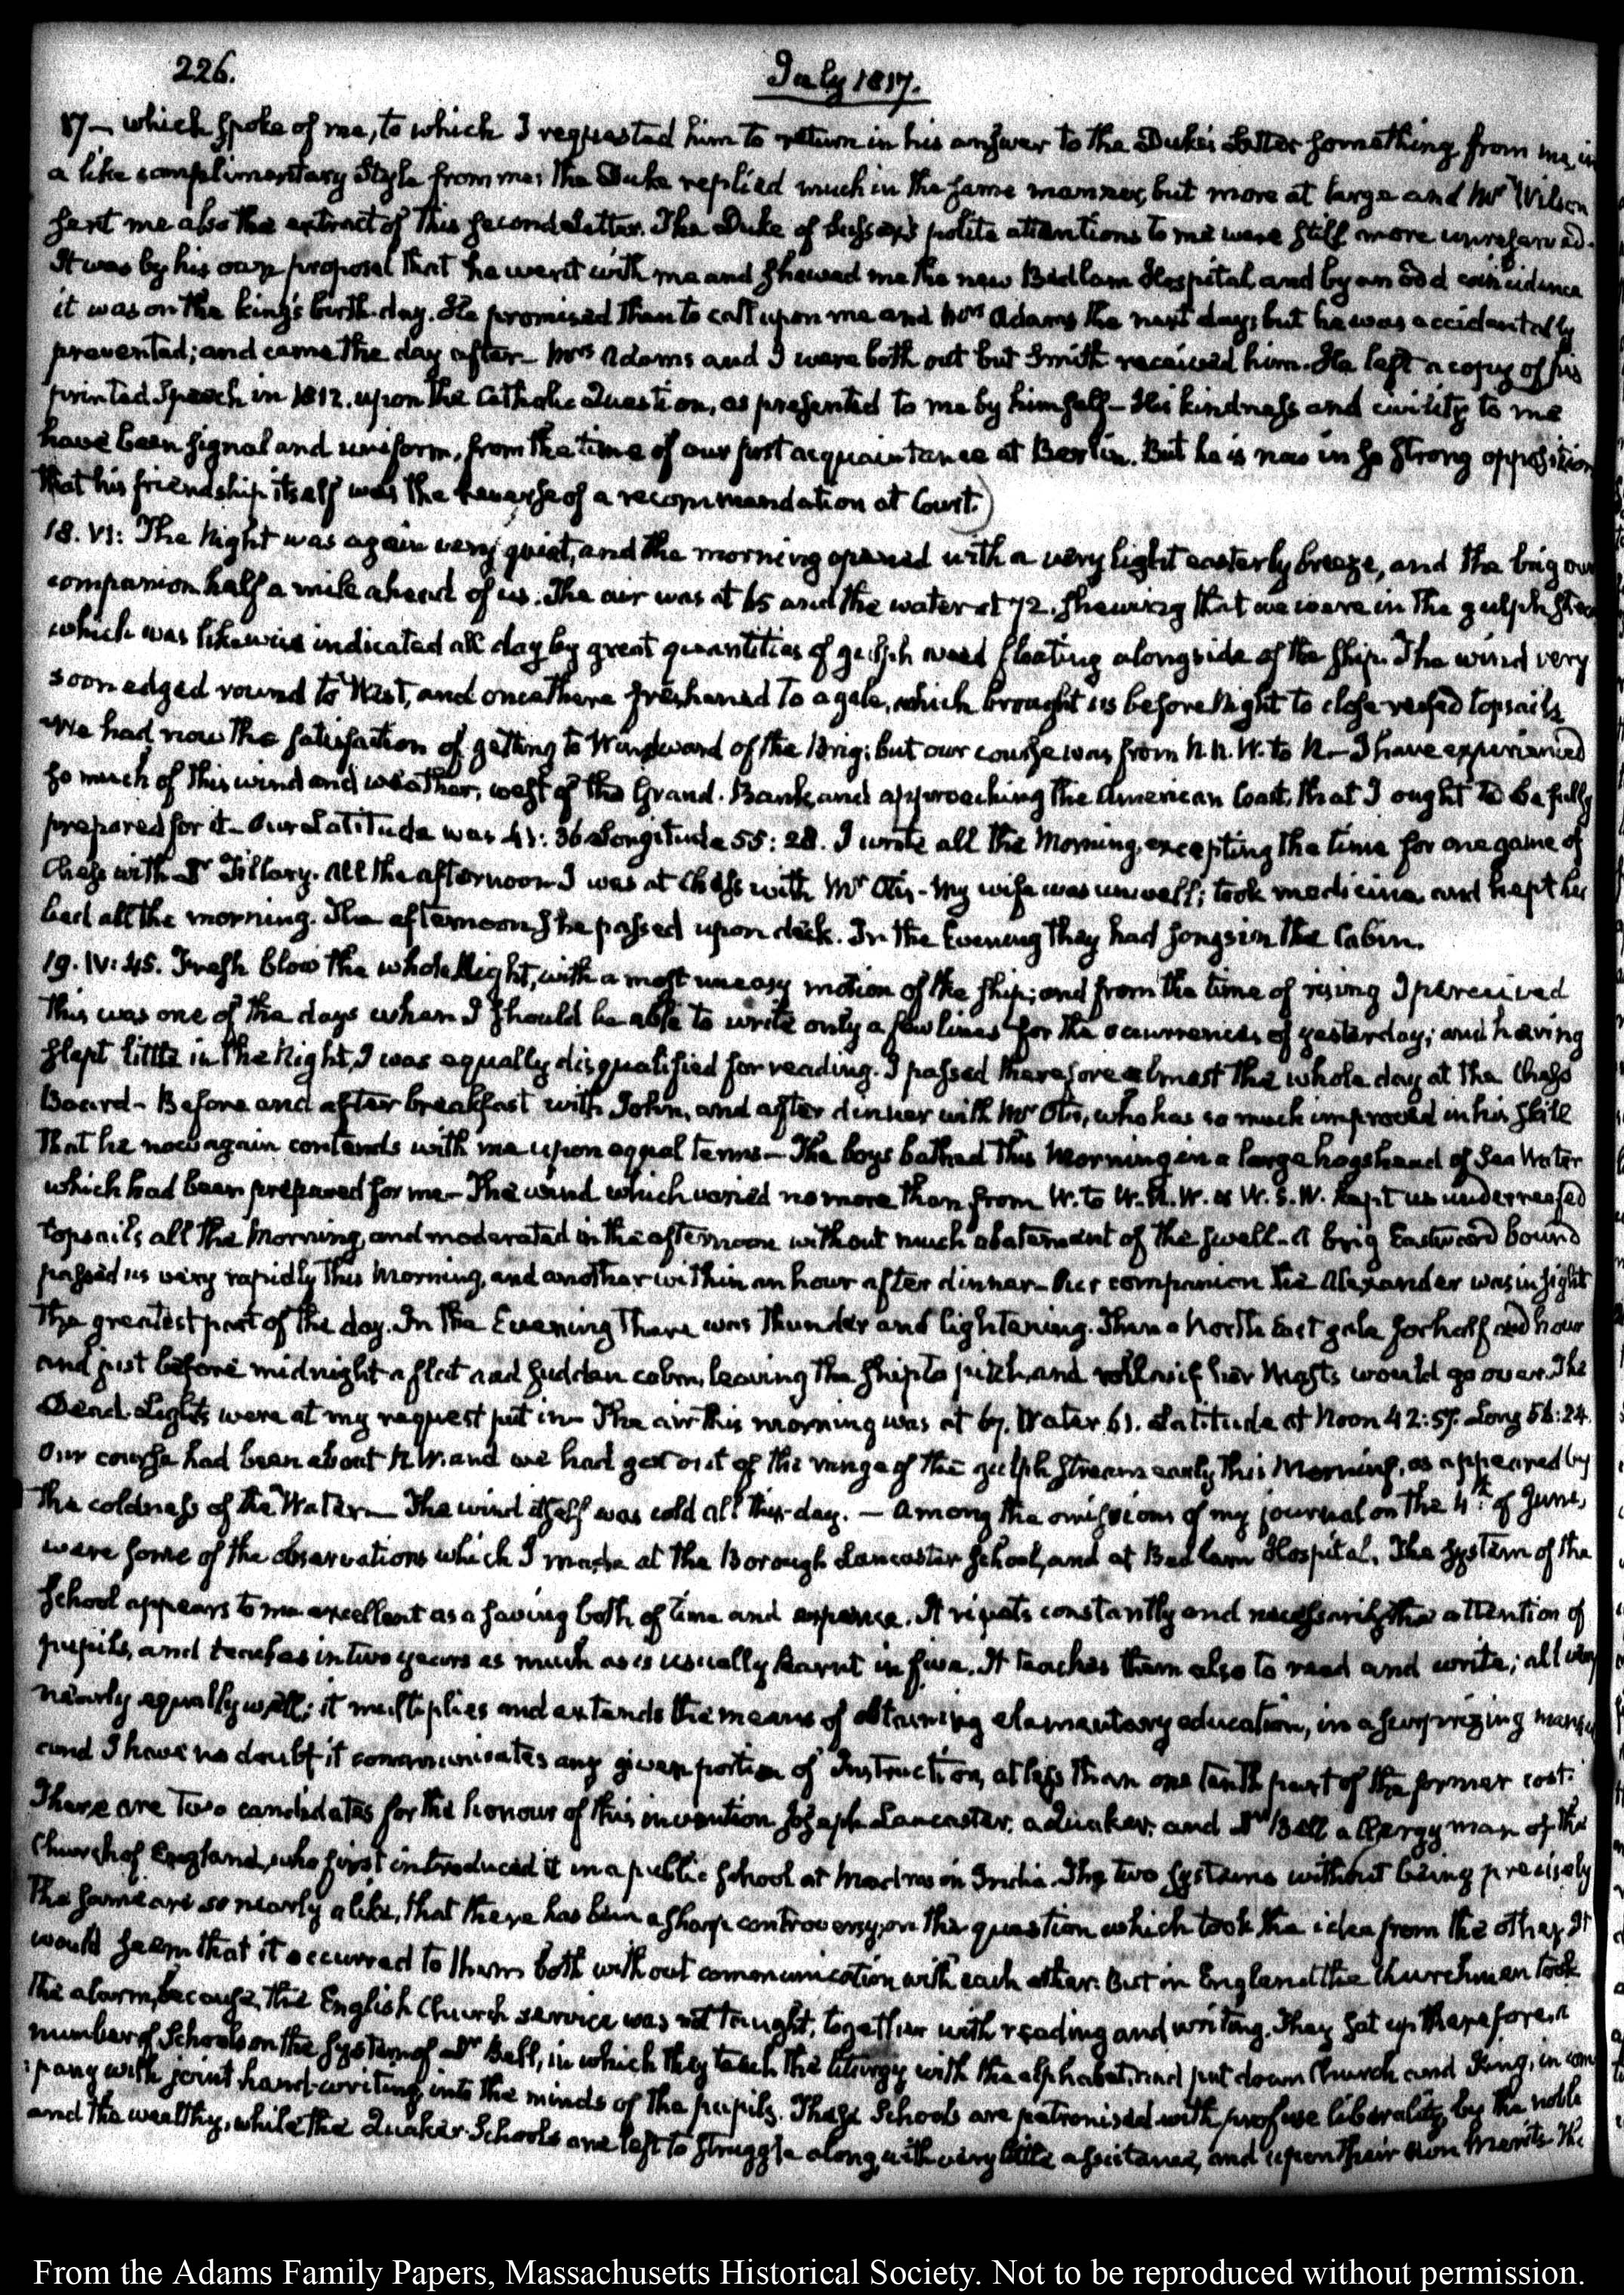 226.
July 1817.
17— which spoke of me, to which I requested him to return in his answer to the Duke's Letter something from me, in
a like complimentary Style from me: the Duke replied much in the same manner, but more at large and Mr Wilson
sent me also the extract of this second Letter. The Duke of Sussex's polite attentions to me were still more unreserved.
It was by his own proposal that he went with me and shewed me the new Bedlam Hospital, and by an odd coincidence
it was on the king's birth-day. He promised then to call upon me and Mrs Adams the next day; but he was accidentally
prevented; and came the day after— Mrs Adams and I were both out but Smith received him. He left a copy of his
printed Speech in 1812. upon the Catholic Question, as presented to me by himself— His kindness and civility to me
have been signal and uniform, from the time of our first acquaintance at Berlin. But he is now in so strong opposition
that his friendship itself was the reverse of a recommendation at Court.)
18. VI: The Night was again very quiet, and the morning opened with a very light easterly breeze, and the brig our
companion half a mile ahead of us. The air was at 65 and the water at 72. shewing that we were in the gulph Stre
which was likewise indicated all day by great quantities of gulph weed floating alongside of the ship. The wind very
soon edged round to West, and once there freshened to a gale, which brought us before Night to close reefed topsails
We had now the satisfaction of getting to Windward of the Brig; but our course was from N.N.W. to N— I have experienced
so much of this wind and weather, west of the Grand-Bank, and approaching the American Coast, that I ought to be fully
prepared for it— Our Latitude was 41: 36 Longitude 55: 28. I wrote all the Morning, excepting the time for one game of
Chess with Dr Tillary. All the afternoon I was at Chess with Mr Otis— My wife was unwell; took medicine, and kept her
bed all the morning. The afternoon she passed upon deck. In the Evening they had songs in the Cabin.
19. IV: 45. Fresh blow the whole Night, with a most uneasy motion of the ship; and from the time of rising I perceived
this was one of the days when I should be able to write only a few lines for the occurrences of yesterday; and having
slept little in the Night, I was equally disqualified for reading. I passed therefore almost the whole day at the Chess
Board— Before and after breakfast with John, and after dinner with Mr Otis, who has so much improved in his skill
that he now again contends with me upon equal terms— The boys bathed this Morning in a large hogshead of Sea Water
which had been prepared for me— The wind which varied no more than from W. to W.N.W. & W.S.W. kept us under reefed
topsails all the Morning, and moderated in the afternoon without much abatement of the swell— A brig Eastward bound
passed us very rapidly this Morning, and another within an hour after dinner— Our companion the Alexander was in sight
the greatest part of the day. In the Evening there was thunder and lightening. Then a North East gale for half an hour
and just before midnight a flat and sudden calm, leaving the ship to pitch, and roll as if her Masts would go over. The
Dead-Lights were at my request put in— The air this morning was at 67. Water 61. Latitude at Noon 42:57. Long 56:24.
Our course had been about N.W. and we had got out of the range of the gulph stream early this Morning, as appeared by
the coldness of the Water— The wind itself was cold all this day. — Among the omissions of my journal on the 4th of June,
were some of the observations which I made at the Borough Lancaster School, and at Bedlam Hospital. The system of the
School appears to me excellent as a saving both of time and expence. It rivets constantly and necessarily the attention of
pupils, and teaches in two years as much as is usually learnt in five. It teaches them also to read and write; all very
nearly equally well; it multiplies and extends the means of obtaining elementary education, in a surprizing manner
and I have no doubt it communicates any given portion of Instruction, at less than one tenth part of the former cost.
There are two candidates for the honour of this invention Joseph Lancaster, a Quaker, and Dr Bell a Clergyman of the
Church of England, who first introduced it in a public school at Madras in India. The two systems without being precisely
the same are so nearly alike, that there has been a sharp controversy, on the question which took the idea from the other. It
would seem that it occurred to them both without communication with each other. But in England the Churchmen took
the alarm, because the English Church service was not taught, together with reading and writing. They set up therefore, a
number of Schools on the system of Dr Bell, in which they teach the liturgy with the alphabet, and put down Church and King, in com
pany with joint hand-writing, into the minds of the pupils. These Schools are patronised with profuse liberality, by the noble
and the wealthy, while the Quaker Schools are left to struggle along, with very little assistance, and upon their own merits. The
From the Adams Family Papers, Massachusetts Historical Society. Not to be reproduced without permission.